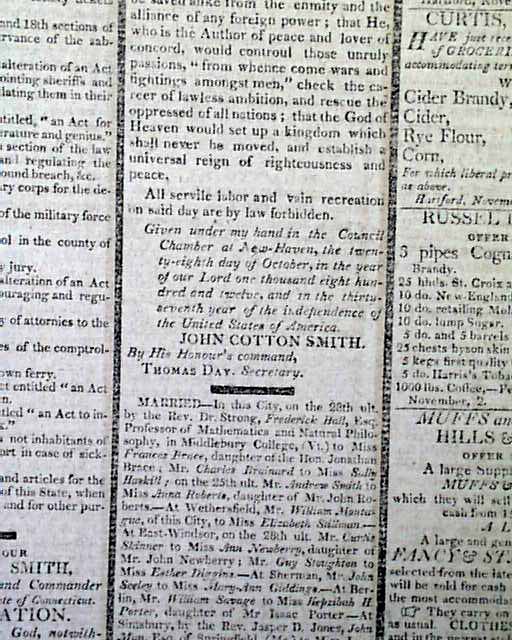 nd 18th sections of
rvance of the sab-
alteration of an Act
ointing sheriffs and
lating them in their
titled, "an Act for
erature and genius."
section of the law
and regulating the
ound breach, &c.
ry corps for the de-
of the military force
ol in the county of
y jury.
alteration of an Act
ouraging and regu-
y of attornies to the
es of the comptrol-
own ferry.
ct entitled "an Act
n.
tled "an Act to in-
k."
s not inhabitants of
ort in case of sick-
and articles for the
of this State, when
and for other pur-
OUR
SMITH,
and Commander
ate of Connecticut.
ATION.
God, notwith-
be saved alike from the enmity and the
alliance of any foreign power; that He,
who is the Author of peace and lover of
concord, would controul those unruly
passions, "from whence come wars and
fightings amongst men," check the ca-
reer of lawless ambition, and rescue the
oppressed of all nations; that the God of
Heaven would set up a kingdom which
shall never be moved, and establish a
universal reign of righteousness and
peace,
All servile labor and vain recreation
on said day are by law forbidden.
Given under my hand in the Council
Chamber at New-Haven, the twen-
ty-eighth day of October, in the year
of our Lord one thousand eight hun-
dred and twelve, and in the thirty-
seventh year of the independence of
the United States of America.
JOHN COTTON SMITH.
By His Honour's command,
THOMAS DAY, Secretary.
MARRIED—In this City, on the 28th ult.
by the Rev. Dr. Strong, Frederick Hall, Esq.
Professor of Mathematics and Natural Philo-
sophy, in Middlebury College, (Vt.) to Miss
Frances Brace, daughter of the Hon. Jonathan
Brace; Mr. Charles Brainard to Miss Sally
Haskill; on the 25th ult. Mr. Andrew Smith to
Miss Anna Roberts, daughter of Mr. John Ro-
berts.—At Wethersfield, Mr. William Monta-
gue, of this City, to Miss Elizabeth Stillman.—
At East-Windsor, on the 28th ult. Mr. Curtis
Skinner to Miss Ann Newberry, daughter of
Mr. John Newberry; Mr. Guy Stoughton to
Miss Esther Diggins—At Sherman, Mr. John
Seeley to Miss Mary-Ann Giddings.—At Ber-
lin, Mr. William Savage to Miss Hepzibah H.
Porter, daughter of Mr. Isaac Porter—At
Simsbury, by the Rev. Jasper D. Jones, John
of Springfield
CURTIS,
HAVE just rece
of GROCERI
accommodating ter
Cider Brandy,
Cider,
Rye Flour,
Corn,
For which liberal pr
as above.
Hartford, Novem
RUSSEL
OFFER
5 pipes Cogn
Brandy.
25 hhds. St. Croix a
10 do. New-England
10 do. retailing Mol
10 do. lump Sugar.
5 do. and 5 barrels
25 chests hyson skin
5 kegs first quality
5 do. Harris's Toba
1000 lbs. Coffee,—Pe
November, 2.
MUFFS an
HILLS &
OFFER
A large Supp
MUFFS &
which they will sell
cash from 15
A L
A large and gen
FANCY & ST
selected from the late
will be told for cash
the most accommodat
They carry on
as usual. CLOTHE